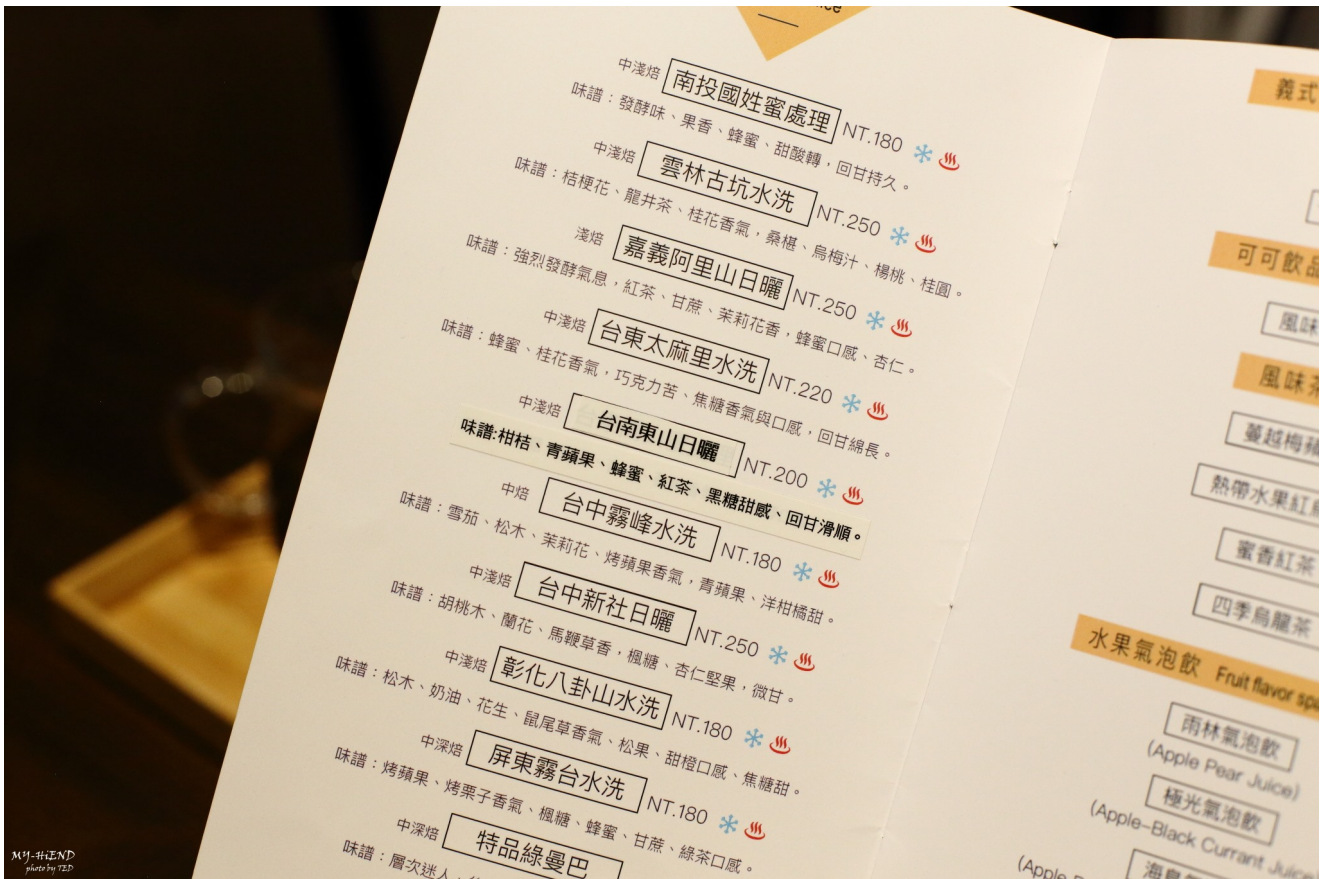 中淺焙 南投國姓蜜處理 NT.180
味譜：發酵味、果香、蜂蜜、甜酸轉，回甘持久。
中淺焙 雲林古坑水洗 NT.250
味譜：桔梗花、龍井茶、桂花香氣，桑椹、烏梅汁、楊桃、桂圓。
淺焙 嘉義阿里山日曬 NT.250
味譜：強烈發酵氣息，紅茶、甘蔗、茉莉花香，蜂蜜口感、杏仁。
中淺焙 台東太麻里水洗 NT.220
味譜：蜂蜜、桂花香氣，巧克力苦、焦糖香氣與口感，回甘綿長。
中淺焙 台南東山日曬 NT.200
味譜:柑桔、青蘋果、蜂蜜、紅茶、黑糖甜感、回甘滑順。
中焙 台中霧峰水洗 NT.180
味譜：雪茄、松木、茉莉花、烤蘋果香氣，青蘋果、洋柑橘甜。
中淺焙 台中新社日曬 NT.250
味譜：胡桃木、蘭花、馬鞭草香，楓糖、杏仁堅果，微甘。
中淺焙 彰化八卦山水洗 NT.180
味譜：松木、奶油、花生、鼠尾草香氣、松果、甜橙口感、焦糖甜。
中深焙 屏東霧台水洗 NT.180
味譜：烤蘋果、烤栗子香氣、楓糖、蜂蜜、甘蔗、綠茶口感。
中深焙 特品綠曼巴
味譜：層次迷人
義式
可可飲品
風味
風味茶
蔓越梅蘋
熱帶水果紅
蜜香紅茶
四季烏龍茶
水果氣泡飲 Fruit flavor
雨林氣泡飲
(Apple Pear Juice)
極光氣泡飲
(Apple-Black Currant Juice
海島
(Apple
MY-HiEND
photo by TED